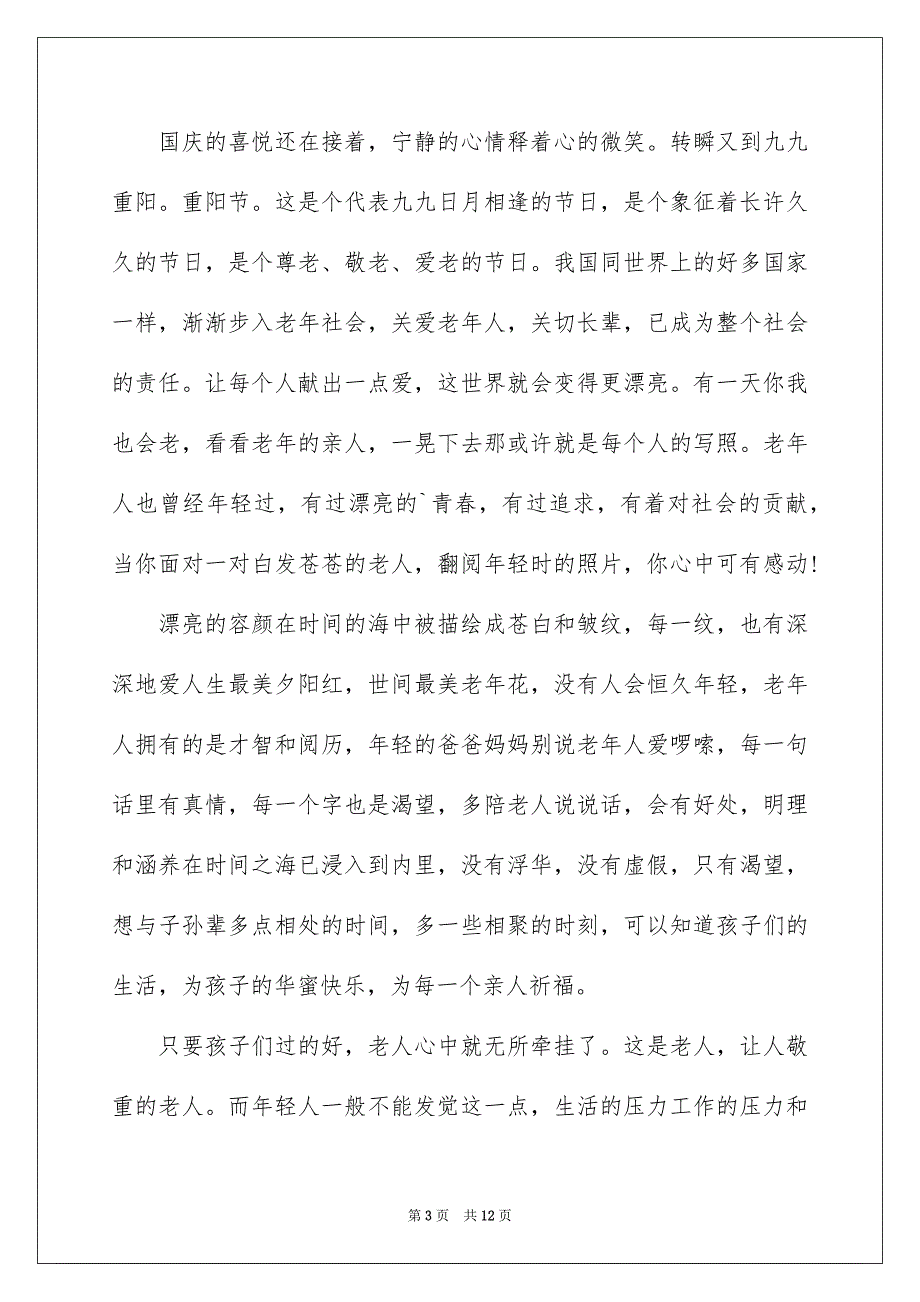 国庆的喜悦还在接着，宁静的心情释着心的微笑。转瞬又到九九
重阳。重阳节。这是个代表九九日月相逢的节日，是个象征着长许久
久的节日，是个尊老、敬老、爱老的节日。我国同世界上的好多国家
一样，渐渐步入老年社会，关爱老年人，关切长辈，已成为整个社会
的责任。让每个人献出一点爱，这世界就会变得更漂亮。有一天你我
也会老，看看老年的亲人，一晃下去那或许就是每个人的写照。老年
人也曾经年轻过，有过漂亮的`青春，有过追求，有着对社会的贡献，
当你面对一对白发苍苍的老人，翻阅年轻时的照片，你心中可有感动!
漂亮的容颜在时间的海中被描绘成苍白和皱纹，每一纹，也有深
深地爱人生最美夕阳红，世间最美老年花，没有人会恒久年轻，老年
人拥有的是才智和阅历，年轻的爸爸妈妈别说老年人爱啰嗦，每一句
话里有真情，每一个字也是渴望，多陪老人说说话，会有好处，明理
和涵养在时间之海已浸入到内里，没有浮华，没有虚假，只有渴望，
想与子孙辈多点相处的时间，多一些相聚的时刻，可以知道孩子们的
生活，为孩子的华蜜快乐，为每一个亲人祈福。
只要孩子们过的好，老人心中就无所牵挂了。这是老人，让人敬
重的老人。而年轻人一般不能发觉这一点，生活的压力工作的压力和
第 3 页 共 12 页